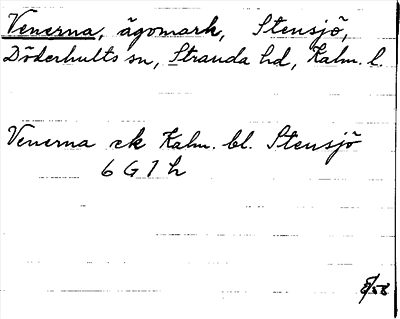 Venerna, ägomark, Stensjö,
Döderhults sn, Stranda hd, Kalm. l.
Venerna ek Kalm. bl. Stensjö
6 G 1 h